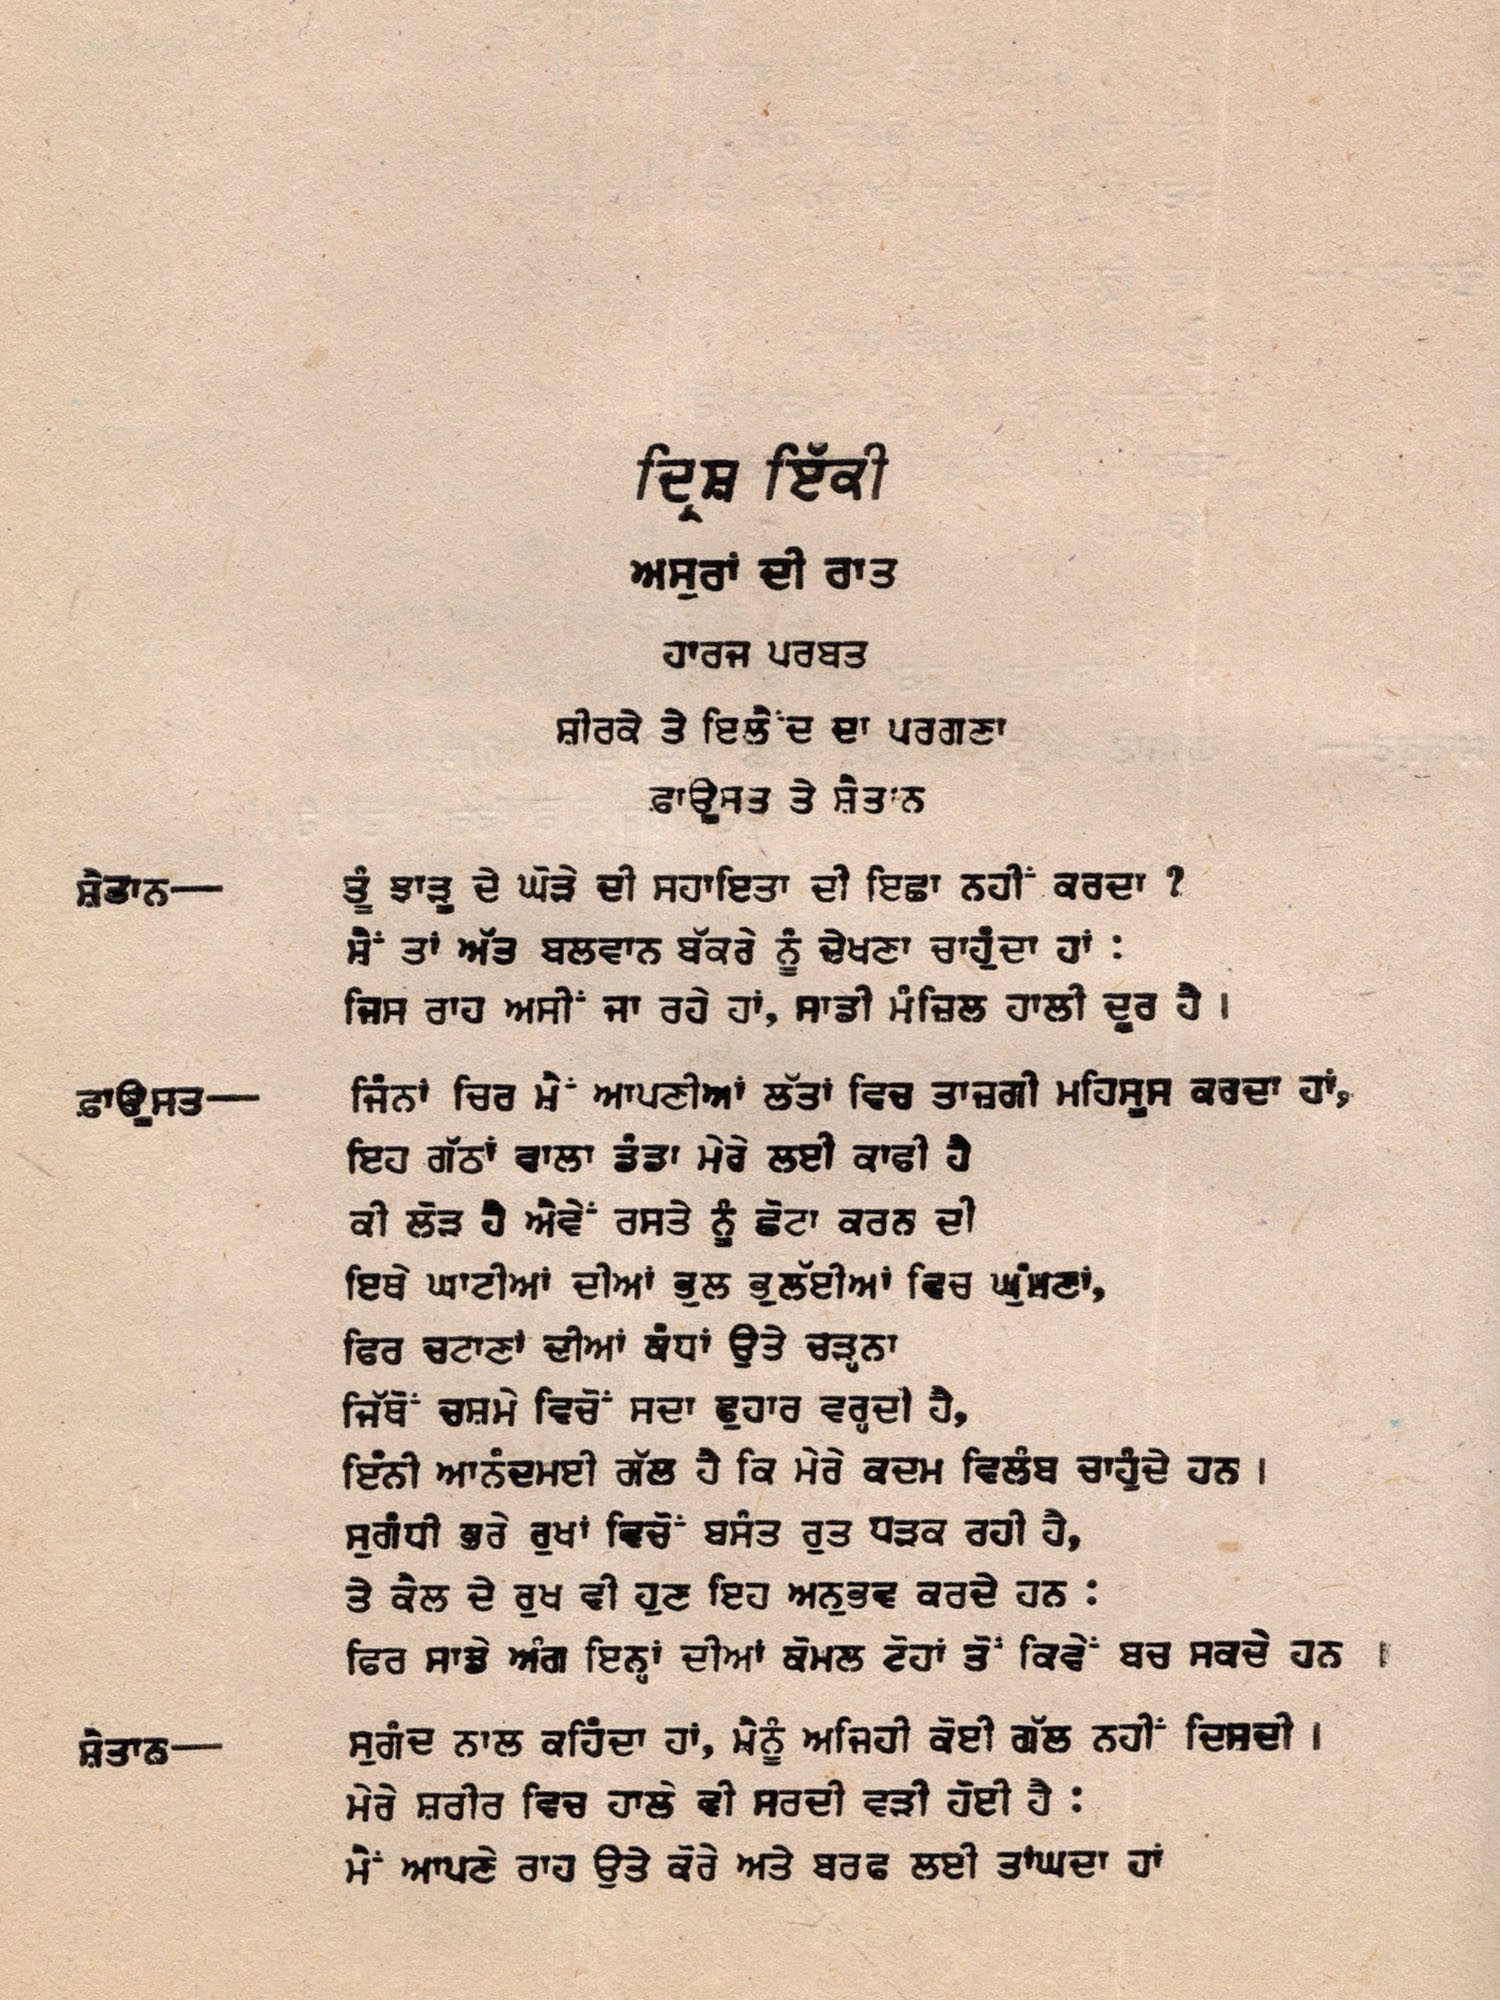 ਦ੍ਰਿਸ਼ ਇੱਕੀ
ਅਸੁਰਾਂ ਦੀ ਰਾਤ
ਹਾਰਜ ਪਰਬਤ
ਸ਼ੀਰਕੇ ਤੇ ਇਲੈਂਦ ਦਾ ਪਰਗਣਾ
ਫ਼ਾਊਸਤ ਤੇ ਸ਼ੈਤਾਨ
ਸ਼ੈਤਾਨ— ਤੂੰ ਝਾੜੂ ਦੇ ਘੋੜੇ ਦੀ ਸਹਾਇਤਾ ਦੀ ਇਛਾ ਨਹੀਂ ਕਰਦਾ ?
ਮੈਂ ਤਾਂ ਅੱਤ ਬਲਵਾਨ ਬੱਕਰੇ ਨੂੰ ਦੇਖਣਾ ਚਾਹੁੰਦਾ ਹਾਂ :
ਜਿਸ ਰਾਹ ਅਸੀਂ ਜਾ ਰਹੇ ਹਾਂ, ਸਾਡੀ ਮੰਜ਼ਿਲ ਹਾਲੀ ਦੂਰ ਹੈ ।
ਫ਼ਾਊਸਤ— ਜਿੰਨਾਂ ਚਿਰ ਮੈਂ ਆਪਣੀਆਂ ਲੱਤਾਂ ਵਿਚ ਤਾਜ਼ਗੀ ਮਹਿਸੂਸ ਕਰਦਾ ਹਾਂ,
ਇਹ ਗੱਠਾਂ ਵਾਲਾ ਡੰਡਾ ਮੇਰੇ ਲਈ ਕਾਫੀ ਹੈ
ਕੀ ਲੋੜ ਹੈ ਐਵੇਂ ਰਸਤੇ ਨੂੰ ਛੋਟਾ ਕਰਨ ਦੀ
ਇਥੇ ਘਾਟੀਆਂ ਦੀਆਂ ਭੁਲ ਭੁਲੱਈਆਂ ਵਿਚ ਘੁੰਮਣਾਂ,
ਫਿਰ ਚਟਾਣਾਂ ਦੀਆਂ ਕੰਧਾਂ ਉਤੇ ਚੜ੍ਹਨਾ
ਜਿੱਥੋਂ ਚਸ਼ਮੇ ਵਿਚੋਂ ਸਦਾ ਫੁਹਾਰ ਵਰ੍ਹਦੀ ਹੈ,
ਇੰਨੀ ਆਨੰਦਮਈ ਗੱਲ ਹੈ ਕਿ ਮੇਰੇ ਕਦਮ ਵਿਲੰਬ ਚਾਹੁੰਦੇ ਹਨ ।
ਸੁਗੰਧੀ ਭਰੇ ਰੁਖਾਂ ਵਿਚੋਂ ਬਸੰਤ ਰੁਤ ਧੜਕ ਰਹੀ ਹੈ,
ਤੇ ਕੈਲ ਦੇ ਰੁਖ ਵੀ ਹੁਣ ਇਹ ਅਨੁਭਵ ਕਰਦੇ ਹਨ :
ਫਿਰ ਸਾਡੇ ਅੰਗ ਇਨ੍ਹਾਂ ਦੀਆਂ ਕੋਮਲ ਟੋਹਾਂ ਤੋਂ ਕਿਵੇਂ ਬਚ ਸਕਦੇ ਹਨ ।
ਸ਼ੈਤਾਨ— ਸੁਗੰਦ ਨਾਲ ਕਹਿੰਦਾ ਹਾਂ, ਮੈਨੂੰ ਅਜਿਹੀ ਕੋਈ ਗੱਲ ਨਹੀਂ ਦਿਸਦੀ ।
ਮੇਰੇ ਸ਼ਰੀਰ ਵਿਚ ਹਾਲੇ ਵੀ ਸਰਦੀ ਵੜੀ ਹੋਈ ਹੈ :
ਮੈਂ ਆਪਣੇ ਰਾਹ ਉਤੇ ਕੋਰੇ ਅਤੇ ਬਰਫ ਲਈ ਤਾਂਘਦਾ ਹਾਂ